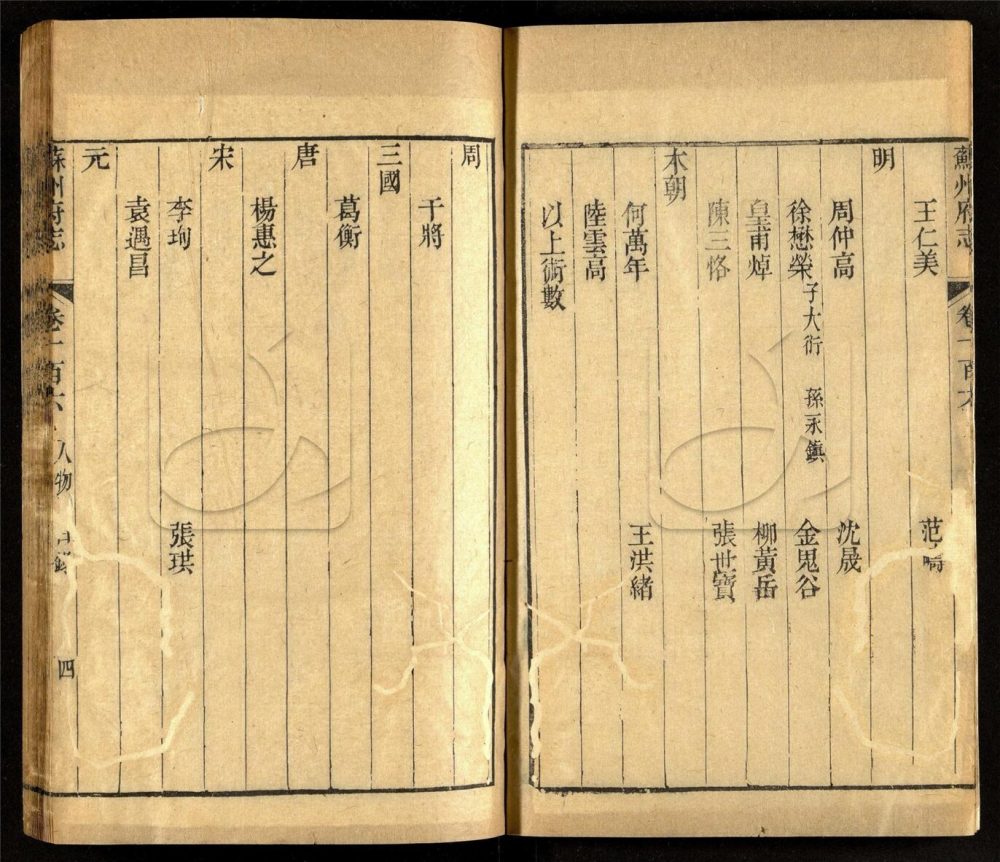 蘇州府志 卷一百六
王仁美 范
明
周仲高 沈晟
徐懋榮 子大衍 孫永鎮 金鬼谷
皇甫焯 柳黃岳
陳三恪 張世寶
本朝
何萬年 王洪緒
陸雲高
以上術數
周
干將
三國
葛衡
唐
楊惠之
宋
李珣 張珙
袁遇昌
元
蘇州府志 卷一百六 人物 四